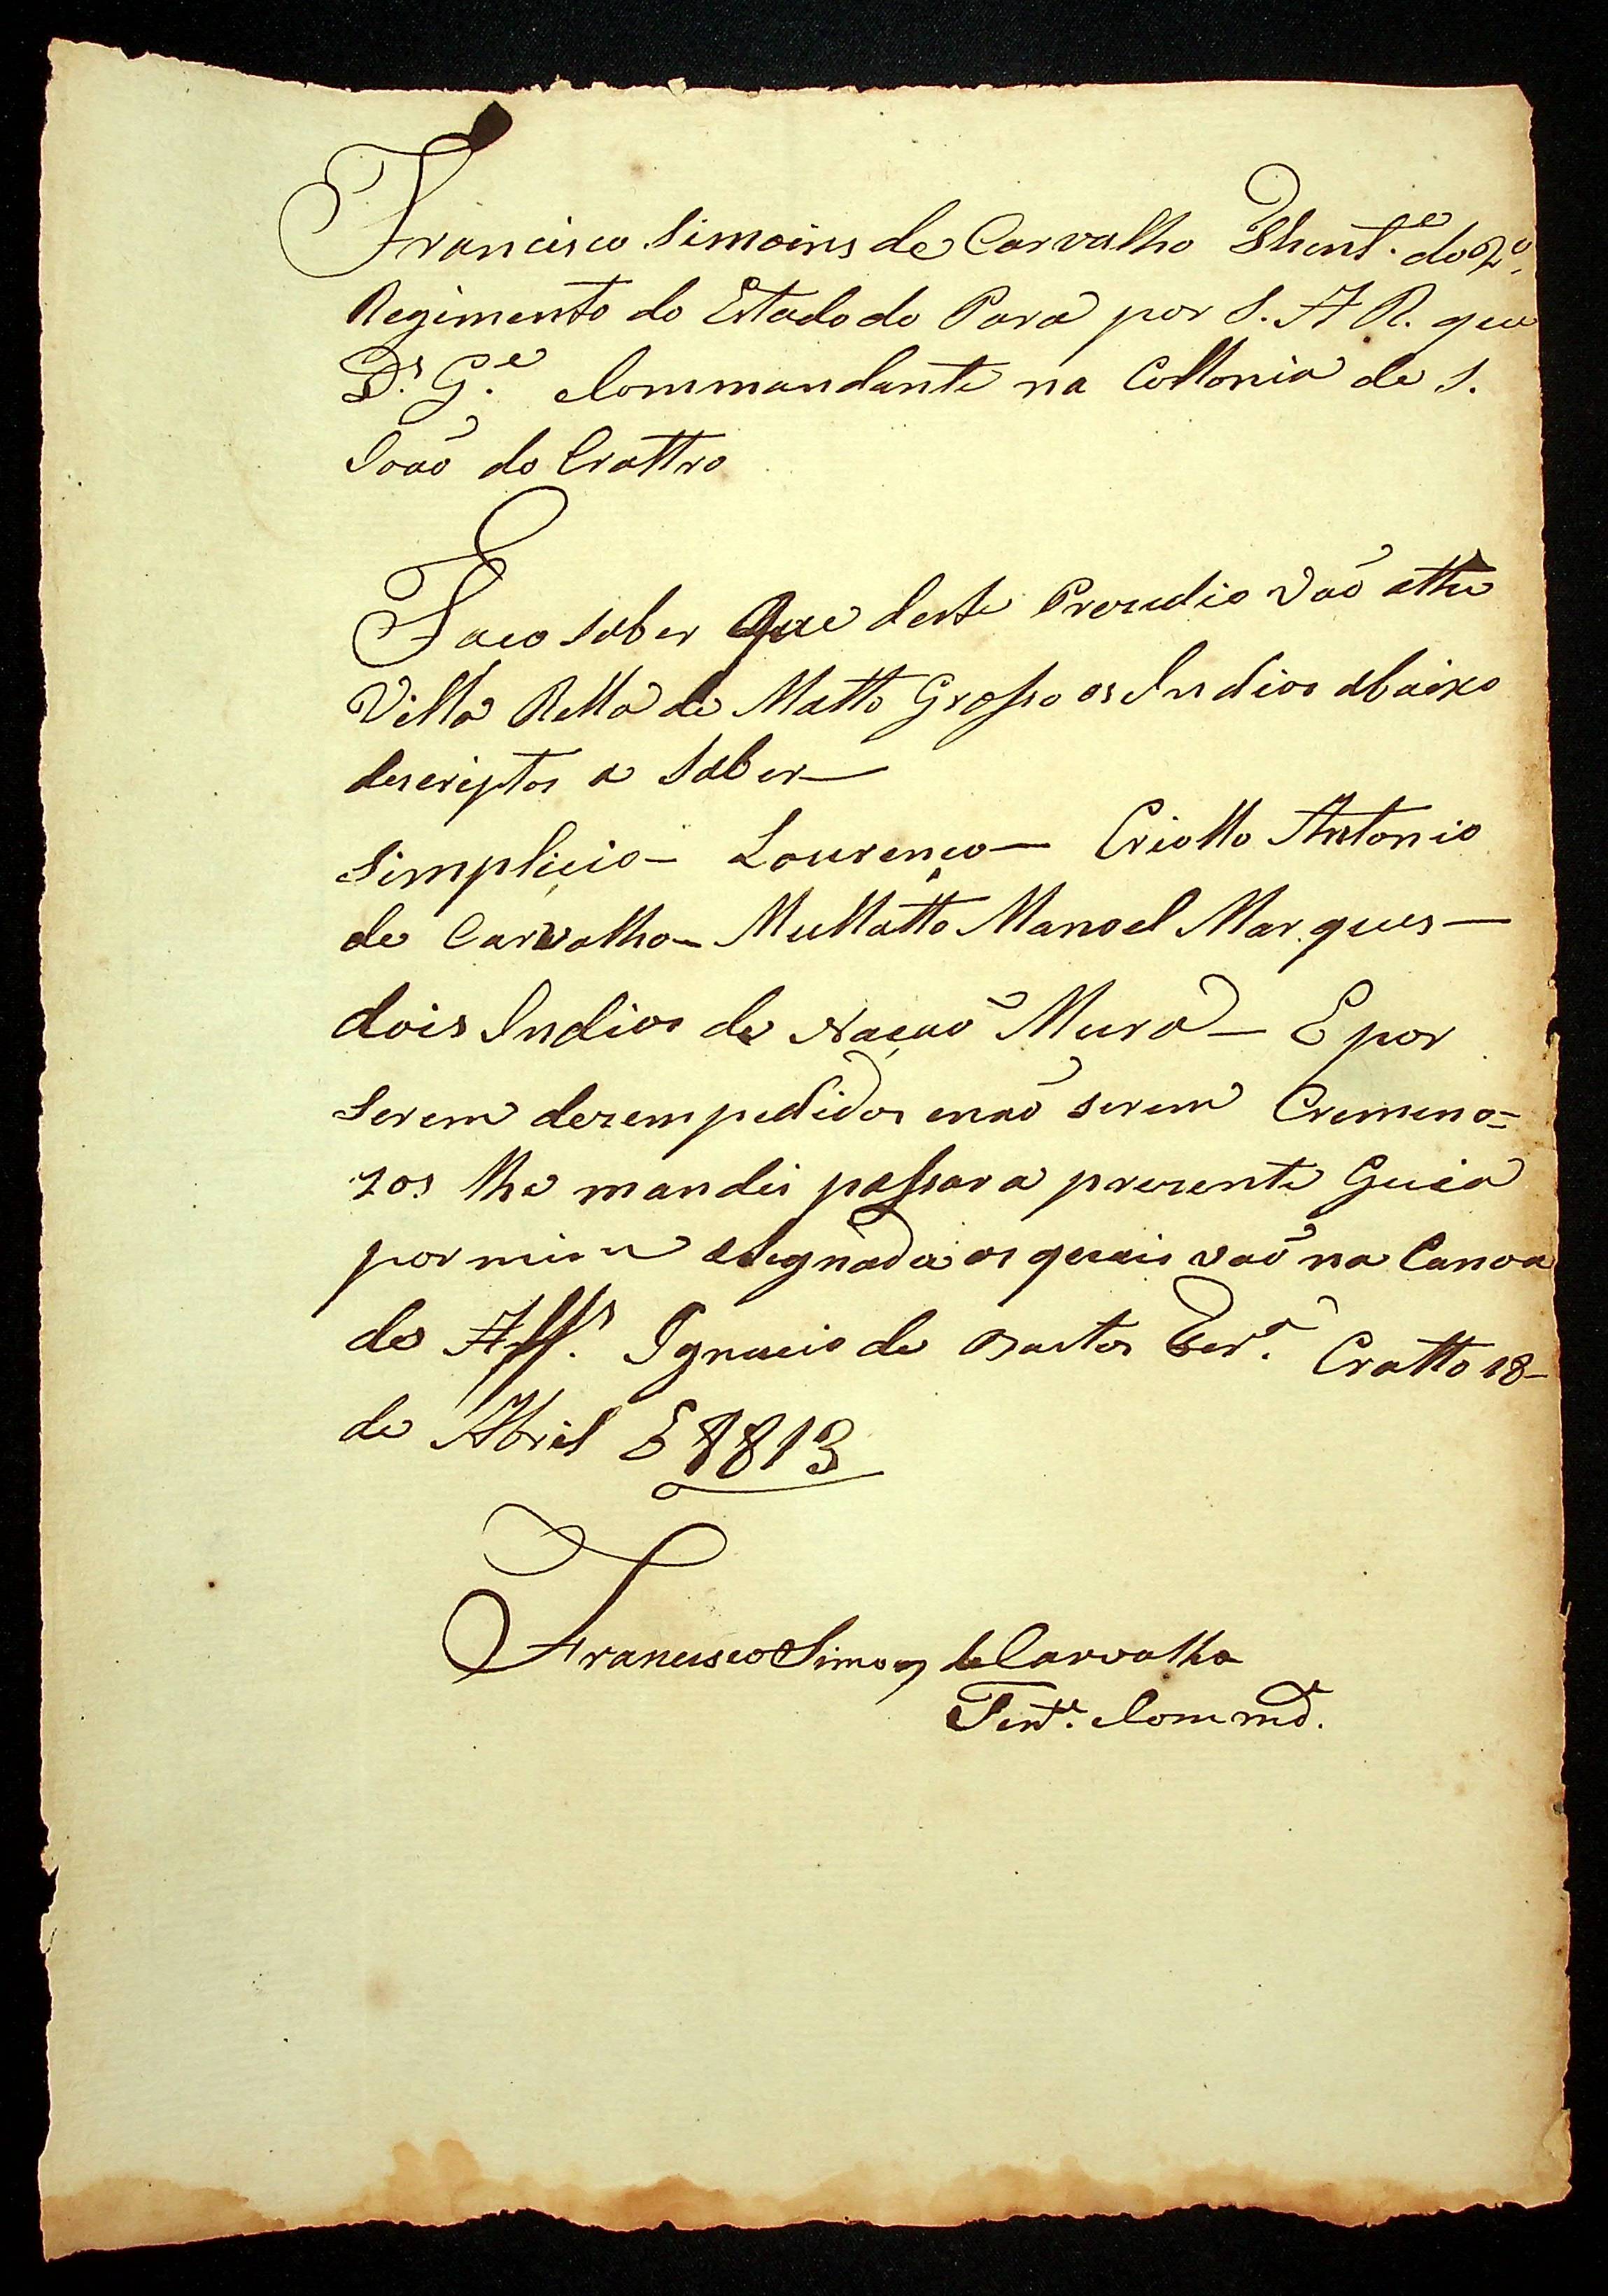 Francisco Simoins de Carvalho Thent.e do 2.o
Regimento do Estado do Pará por S. A R. que
D.s G.e Commandante na Collonia de S.
João do Crattro
Faco saber Que deste Prezudio vaõ athe
Villa Bella de Matto Grosso os Indios abaixo
descriptos a saber—
Simplicio— Lourenço— Criollo Antonio
de Carvalho— Mullatto Manoel Marques—
dois Indios de Naçaõ Mura— E por
serem dezempedidos enaõ serem Cremeno=
zos lhe mandei passar a prezente Guia
por mim asegnada os quais vaõ na Canoa
do Alf.s Ignacio de Cratto 18—
de Abril E 1813
Francisco Simoes de Carvalho
Tent.e Commd.e